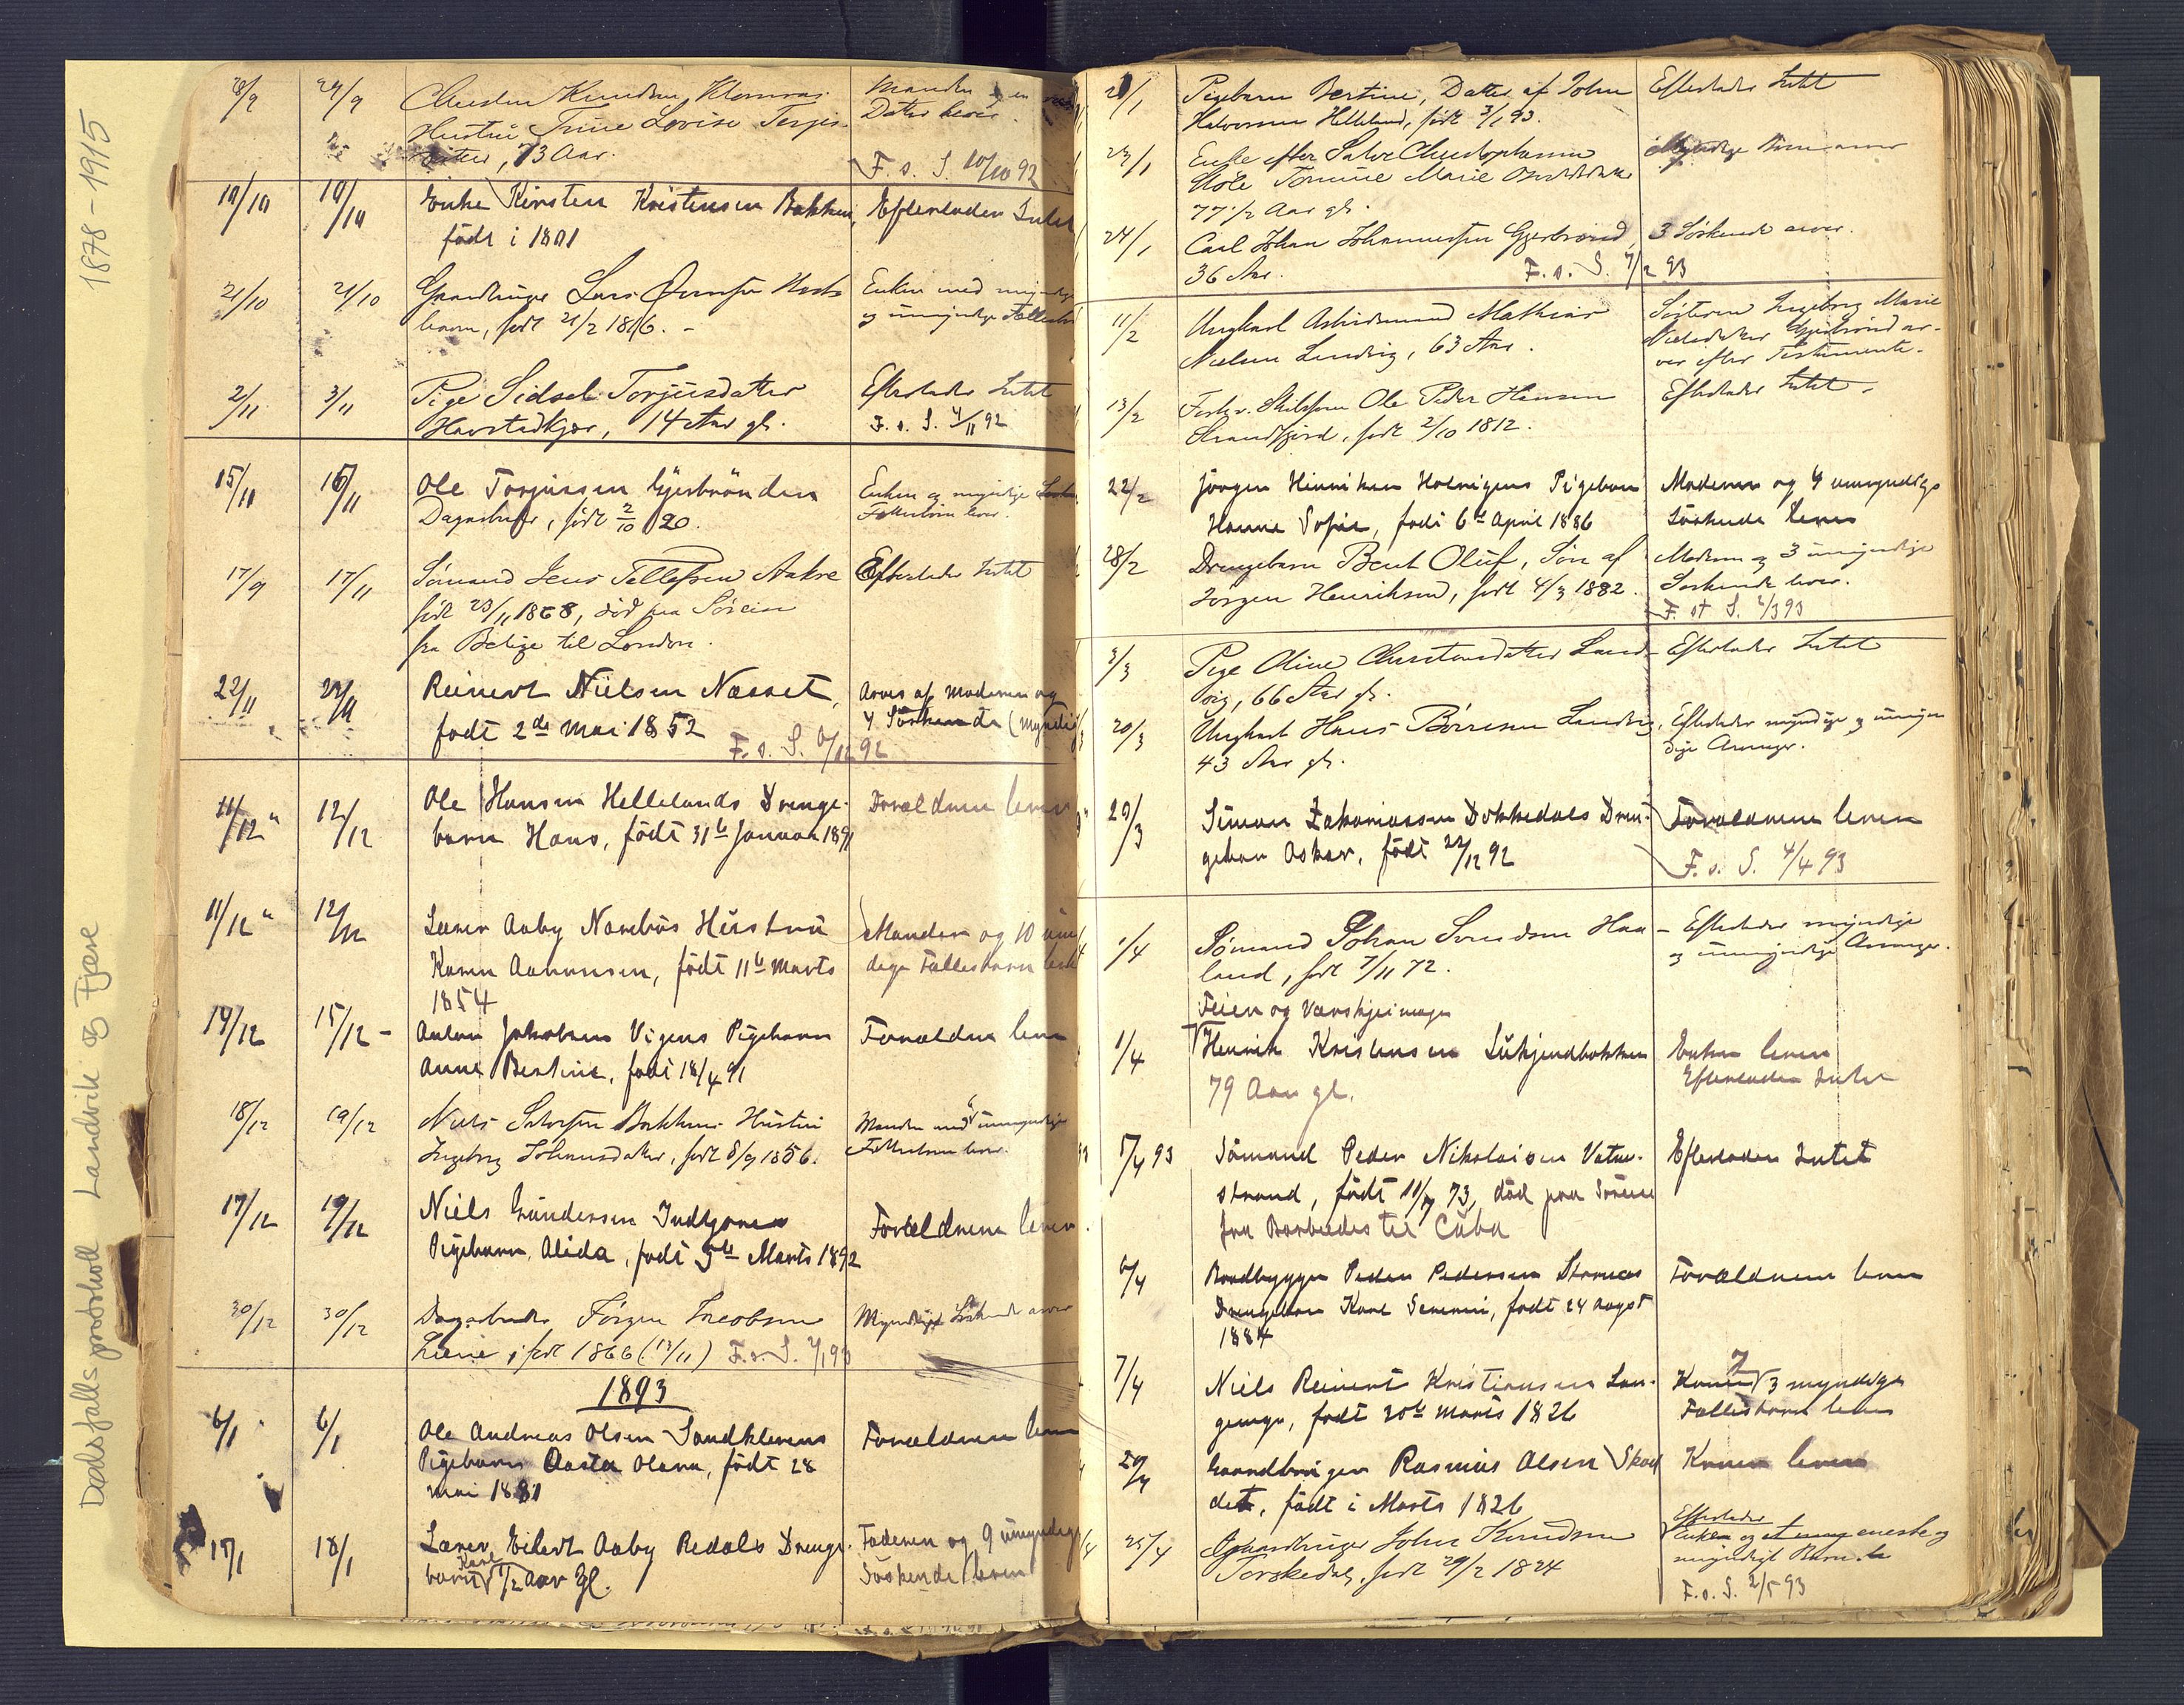 1878 - 1915
Dødsfalls protokoll Landvik og Fjære
28/9 29/9 Christen Knudsen
Hustru Trine Lovise Terjes-
datter, 73 Aar.
Manden
Datter lever.
F. s. S. 10/10 92
10/10 10/10 Enke Kirsten Kristensen Bakken, Efterlader Intet
født i 1801
21/10 21/10 Gaardbruger Lars
født 21/2 1816. -
Enken med
og umyndige Fællesb
2/11 3/11 Pige Sidsel Torjusdatter
Havstedkjær, 14 Aar gl.
Efterlader Intet
F. s. S. 4/11 92
15/11 16/11 Ole Torjussen Gjerbrønden
Dagarbeider, født 2/10 1820.
Enken og myndige
Fællesbørn lever.
17/9 17/11 Sømand Jens Tellefsen Aakre Efterlader Intet
født 23/11 1868, død paa Søreise
fra Belize til London.
22/11 22/11 Reinert Nielsen Næsset,
født 2de Mai 1852
Arves af Moderen og
4 Søskende (myndig
F. s. S. 6/12 92
11/12 " 12/12 Ole Hansen Hellelands Drenge-
barn Hans, født 31te Januar 1891
Forældrene lever
11/12 " 12/12 Lærer Aaby Hustru
Karen Aanonsen, født 11te Marts
1854
Manden og 10 um
dige Fællesbørn lever
14/12 15/12 - Anton Jakobsen Vigens Pigebarn
Anne Bertine, født 18/4 91
Forældrene lever
18/12 19/12 Niels Salvesen Bakkens Hustru
Ingeborg Johnnesdatter, født 8/9 1856.
Manden med 6 umyndige
Fællesbørn lever.
17/12 19/12 Niels Gundersen Indtjøres
Pigebarn, Alida, født 5te Marts 1892
Forældrene lever
30/12 30/12 Dagarbeider Jørgen Jacobsen
født 1866 (13/11) F. s. S. 3/1 93
Myndige Søskende arver
1893
6/1 6/1 Ole Andreas Olsen Sandklevens
Pigebarn Aasta Olava, født 28
Mai 1881
Forældrene lever
17/1 18/1 Lærer Eilert Aaby Redals Drenge-
barn 1/2 Aar gl.
Faderen og 9 umyndige
Søskende lever
21/1 Pigebarn Bertine, Datter af John
Halvorsen Helleland, født 3/1 93.
Efterlader Intet
23/1 Enke efter Salve Christophersen
Tomine Marie
77 1/2 Aar gl.
Myndige Børn arver
24/1 Carl Johan Johannessen Gjerbrønd,
36 Aar.
3 Søskende arver.
F. s. S. 7/2 93
11/2 Ungkarl Mathias
Nielsen Landvig, 63 Aar.
Søsteren Ingeborg Marie
Nielsdatter Gjerbrønd ar-
ver efter Testamente.
13/2 Ole Peder Hansen
Strandfjord, født 2/10 1812.
Efterlader Intet.
22/2 Jørgen Henriksen Pigebarn
Hanne Sofie, født 6te April 1886
Moderen og 4 umyndige
Søskende lever
28/2 Drengebarn Bent Oluf, Søn af
Jørgen Henriksen, født 4/3 1882.
Moderen og 3 umyndige
Søskende lever.
F. st S. 6/3 93
3/3 Pige Oline Christensdatter Land-
vig, 66 Aar gl.
Efterlader Intet
20/3 Ungkarl Hans Børresen Landvig,
43 Aar gl.
Efterlader myndige og umyn
dige Arvinger.
29/3 Simon Zakariassen Dokkedals Dren-
gebarn Oskar, født 22/12 92
Forældrene lever
F. s. S. 4/4 93
1/4 Sømand Johan Svendsen Haa-
land, født 7/11 72.
Efterlader myndige
og umyndige Arvinger.
Feier og Værtskjeringer
1/4 Henrik Kristensen
79 Aar gl.
Enken lever
Efterlader Intet
5/4 93 Sømand Peder Nikolaisen Vatne-
strand, født 11/7 73, død paa Søreise
fra Barbados til Cuba
Efterlader Intet
6/4 Baadbygger Peder Pedersen
Drengebarn Karl Severin, født 24 August
1884
Forældrene lever
7/4 Niels Reinert Kristiansen Lan-
gemyr, født 20de Marts 1826
Konen 3 myndige
Fællesbørn lever
20/4 Gaardbruger Rasmus Olsen Skal
det, født i Marts 1826
Konen lever
25/4 Gaardbruger John Knudsen
Torskedal, født 29/2 1824
Efterlader
Enken og et eneste og
myndigt Barn
F. s. S. 2/5 93